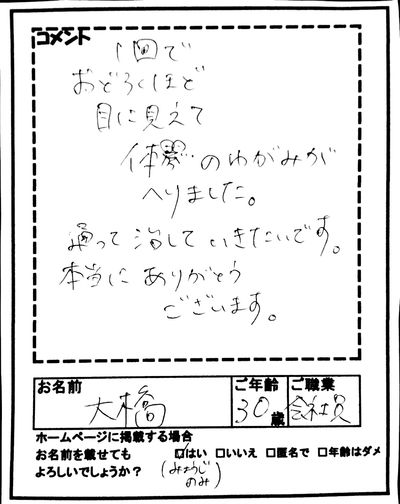 コメント
1回で
おどろくほど
目に見えて
体 のゆがみが
へりました。
通って治していきたいです。
本当にありがとう
ございます。
お名前 ご年齢 ご職業
大橋 30歳 会社員
ホームページに掲載する場合
お名前を載せても ☑はい □いいえ □匿名で □年齢はダメ
よろしいでしょうか？ (みょうじ
のみ)